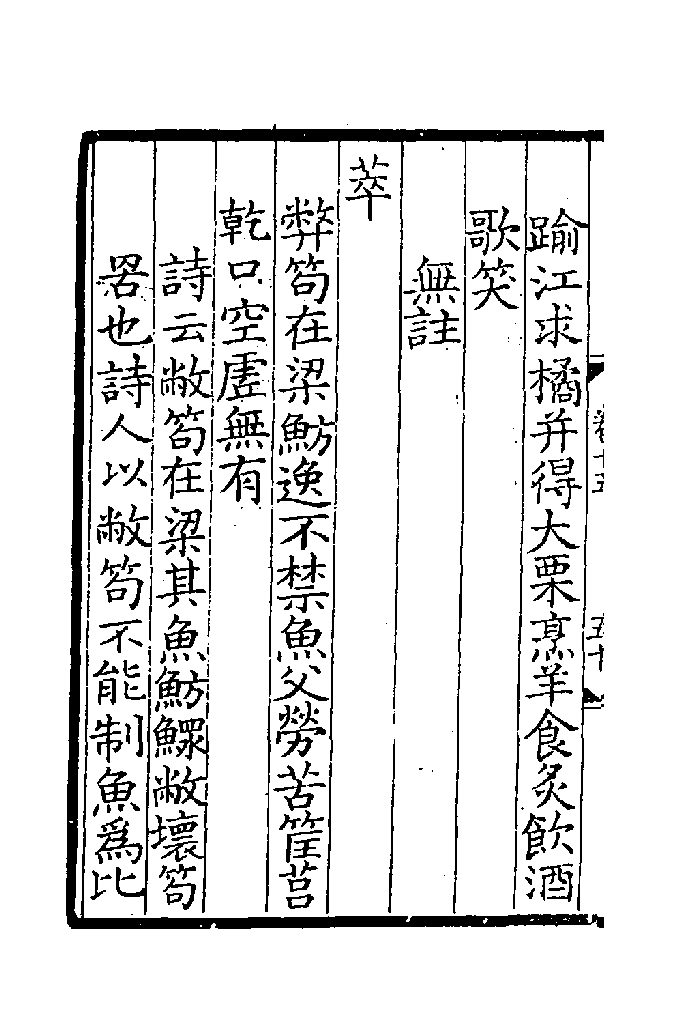 踰江求橘并得大栗烹羊食炙飲酒
歌笑
無註
萃
弊笱在梁魴逸不禁魚父勞苦筐莒
乾口空虗無有
詩云敝笱在梁其魚魴鰥敝壞笱
罟也詩人以敝笱不能制魚爲比
卷十五
五十